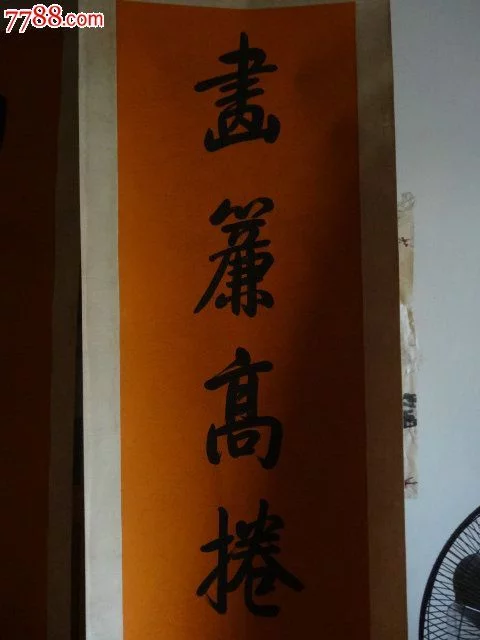 7788.com
畫簾高捲